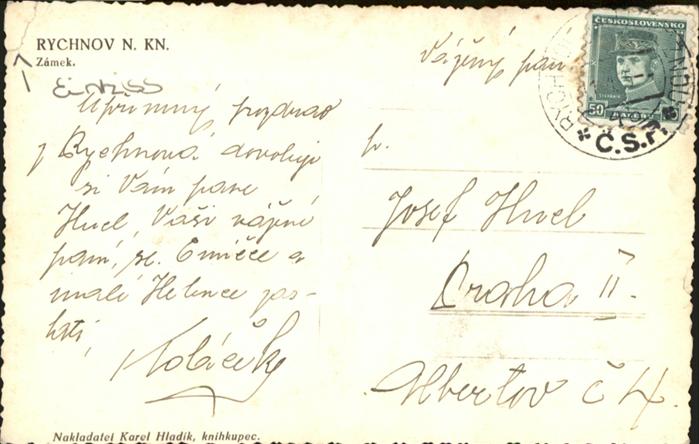 RYCHNOV N. KN.
Zámek.
Upřímný pozdrav
z Rychnova dovoluji
si Vám pane
Hucl, Vaší vážené
paní, sl. Emičce a
malé Helence zas-
lati
Vážený pan
p.
Josef Hucl
Praha II.
Albertov č 4
ČESKOSLOVENSKO
50
HALÉŘŮ
Č.S.R.
Nakladatel Karel Hladík, knihkupec.